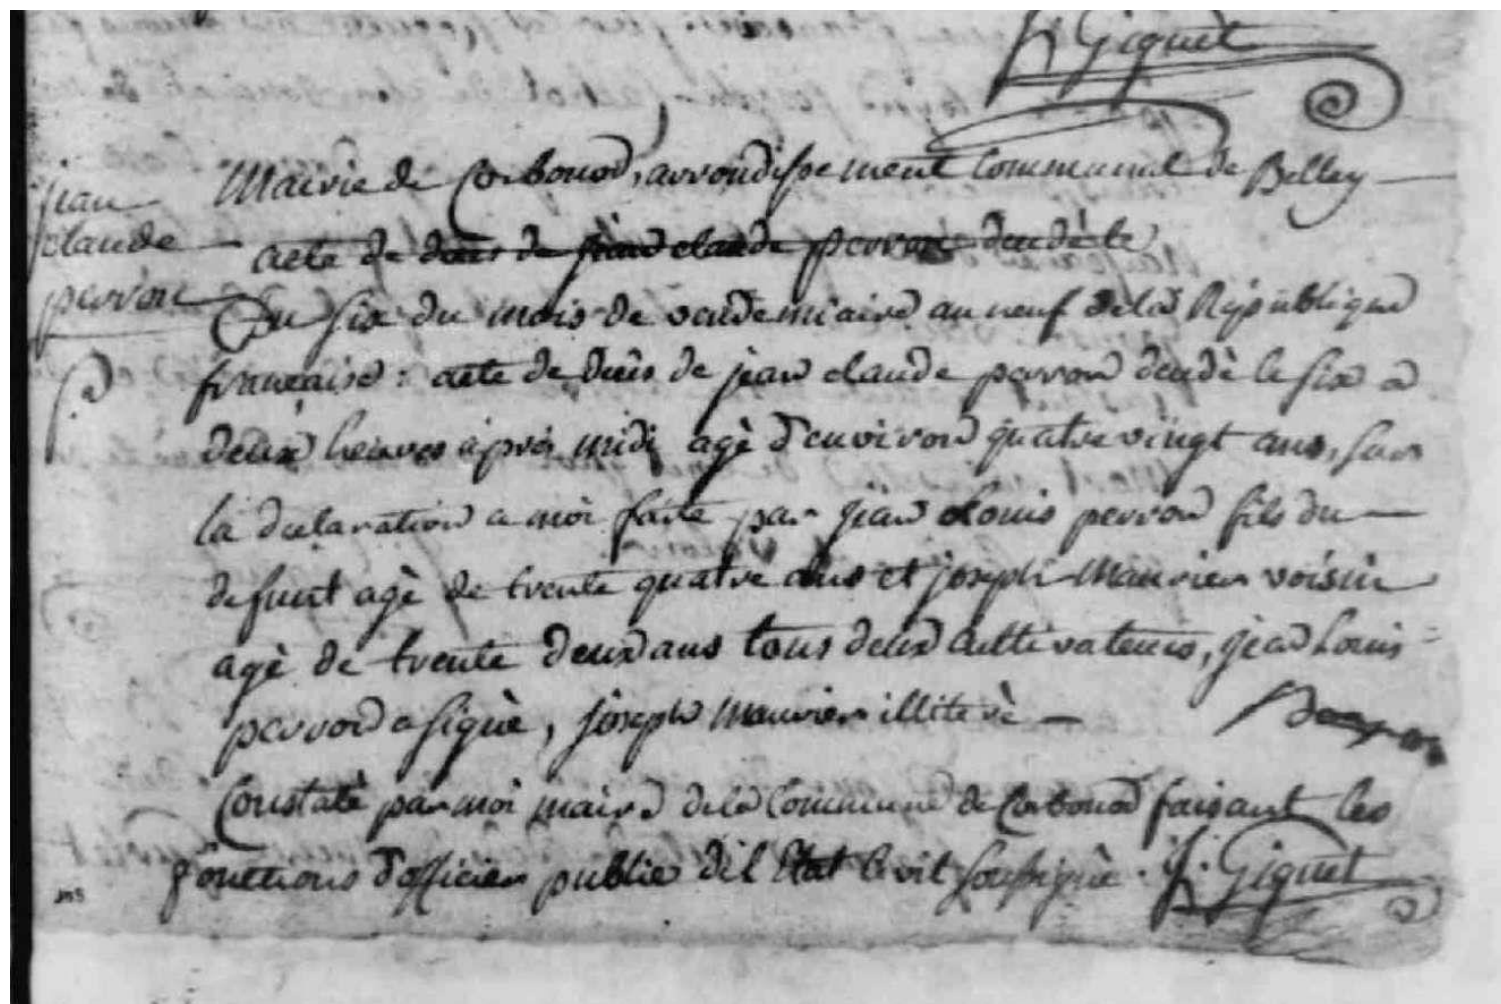 J. Giguet
Mairie de Corbonod, arrondissement Communal de Belley
jean
claude
perron
acte de deces de jean claude perron decedè le
Du six du mois de vendemiaire an neuf de la République
francaise : acte de decès de jean claude perron decedè le six a
deux heures après midi agè d'environ quatre vingt ans, sur
la declaration a moi faite par jean Louis perron fils du
defunt agè de trente quatre ans et joseph Maurier voisin
agè de trente deux ans tous deux cultivateurs, jean Louis
perron a signè, joseph Maurier illiterè
Constatè par moi maire de la Commune de Corbonod faisant les
fonctions d'officier public de l'Etat Civil soussignè. J. Giguet